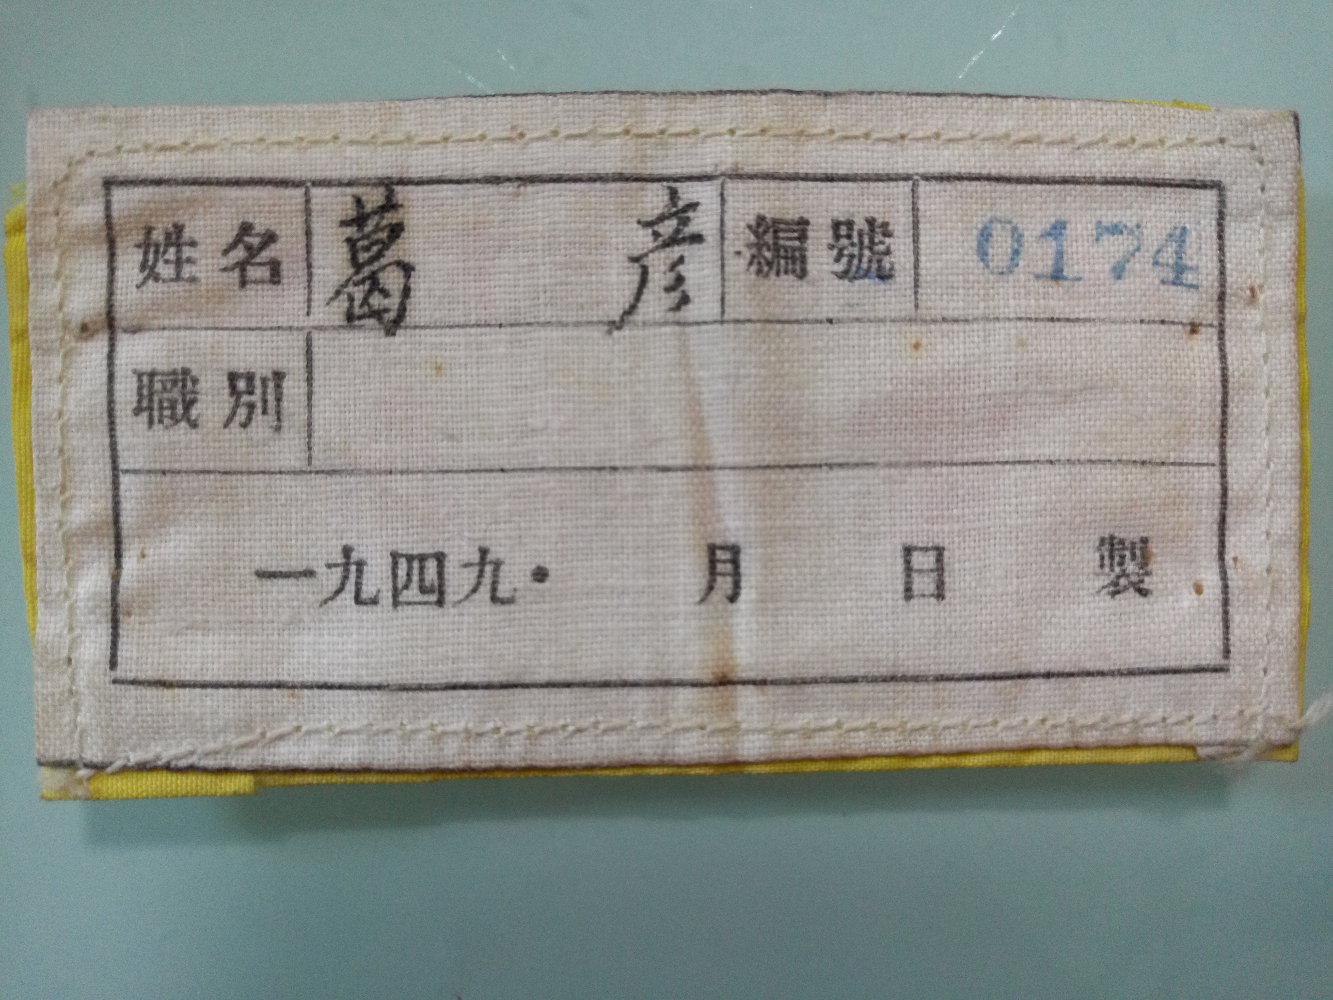 姓名 葛彥 編號 0174
職別
一九四九· 月 日 製